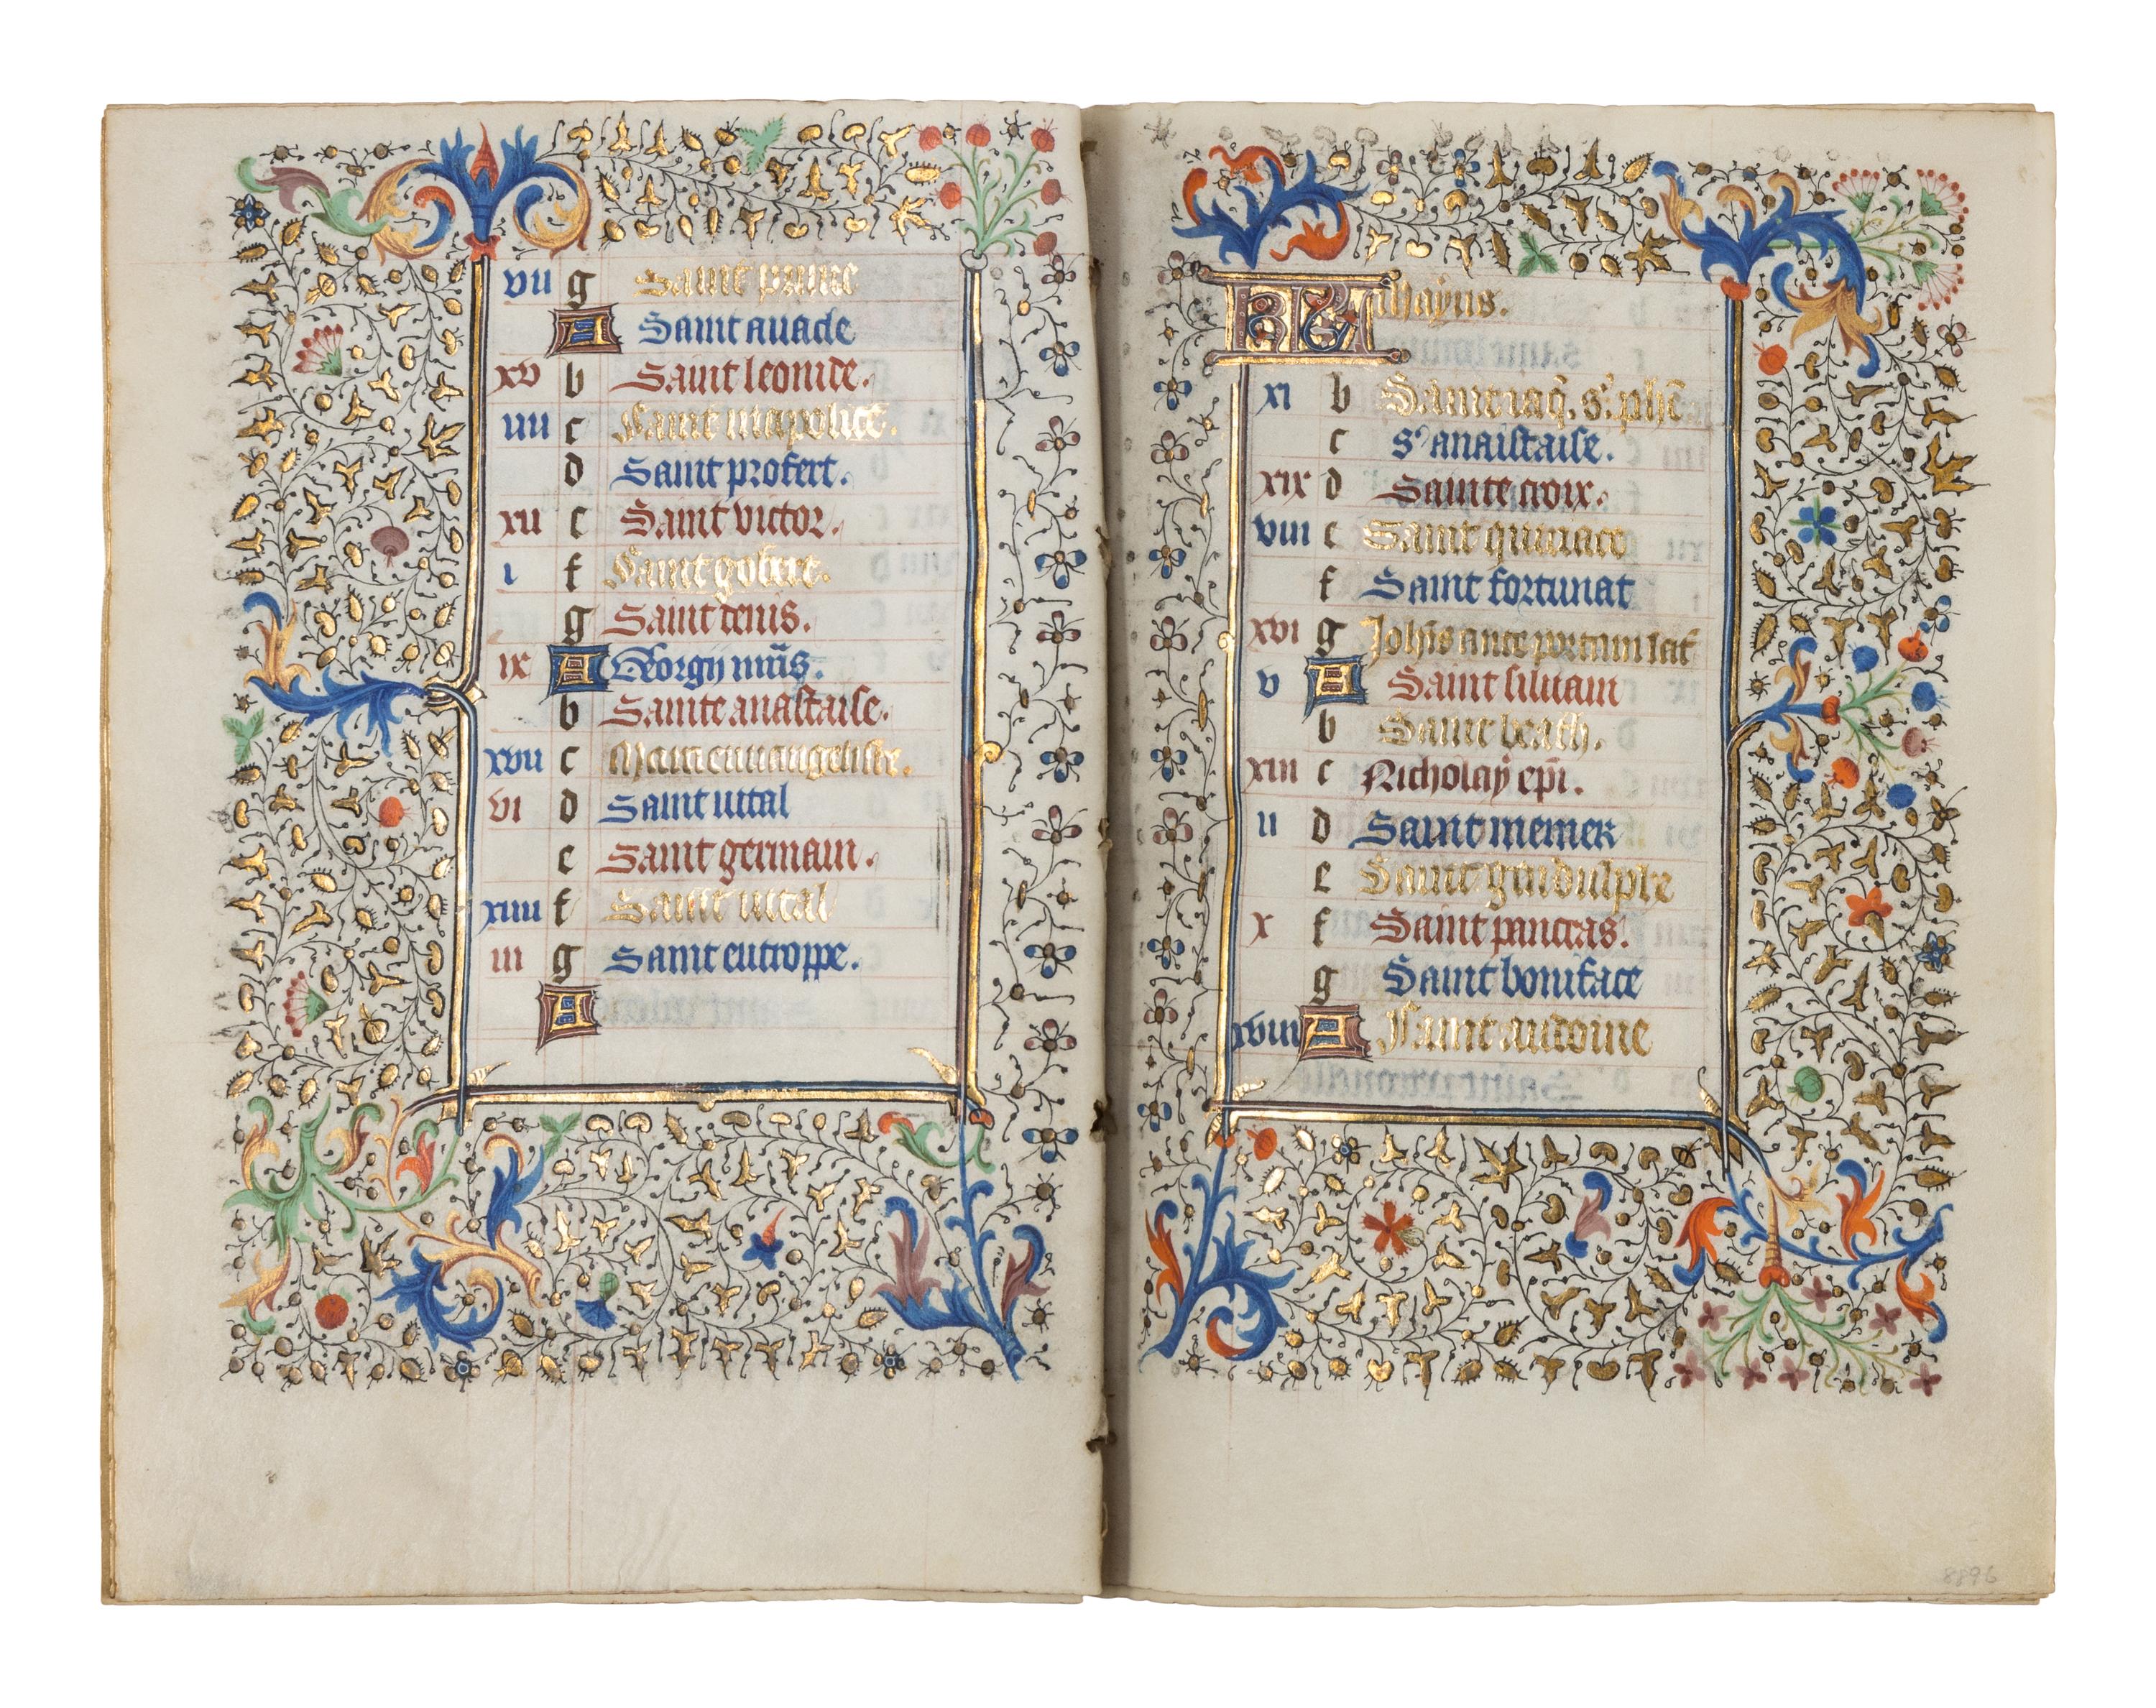 vii g Saint prime
A Saint auacle
xv b Saint leonide.
iiii c Saint mapolice.
d Saint profert.
xii e Saint victor.
i f Saint gobert.
g Saint denis.
ix A Georgij mr̄is.
b Sainte anastaise.
xvii c Marc euuangeliste.
vi d Saint uital
e Saint germain.
xiiii f Saint uital
iii g Saint eutroppe.
A
KL Mayus.
xi b Saint iaq̄. sᵗ. phē
c sᵉ anaistaise.
xix d Sainte croix.
viii e Saint quiriace
f Saint fortunat
xvi g Joh̄is ante portam lat̄
v A Saint siluain
b Saint beath.
xiii c Nicholaÿ ep̄i.
ii d Saint memer
e Saint gindulphe
x f Saint pancras.
g Saint boniface
xviii A Saint antoine
8896